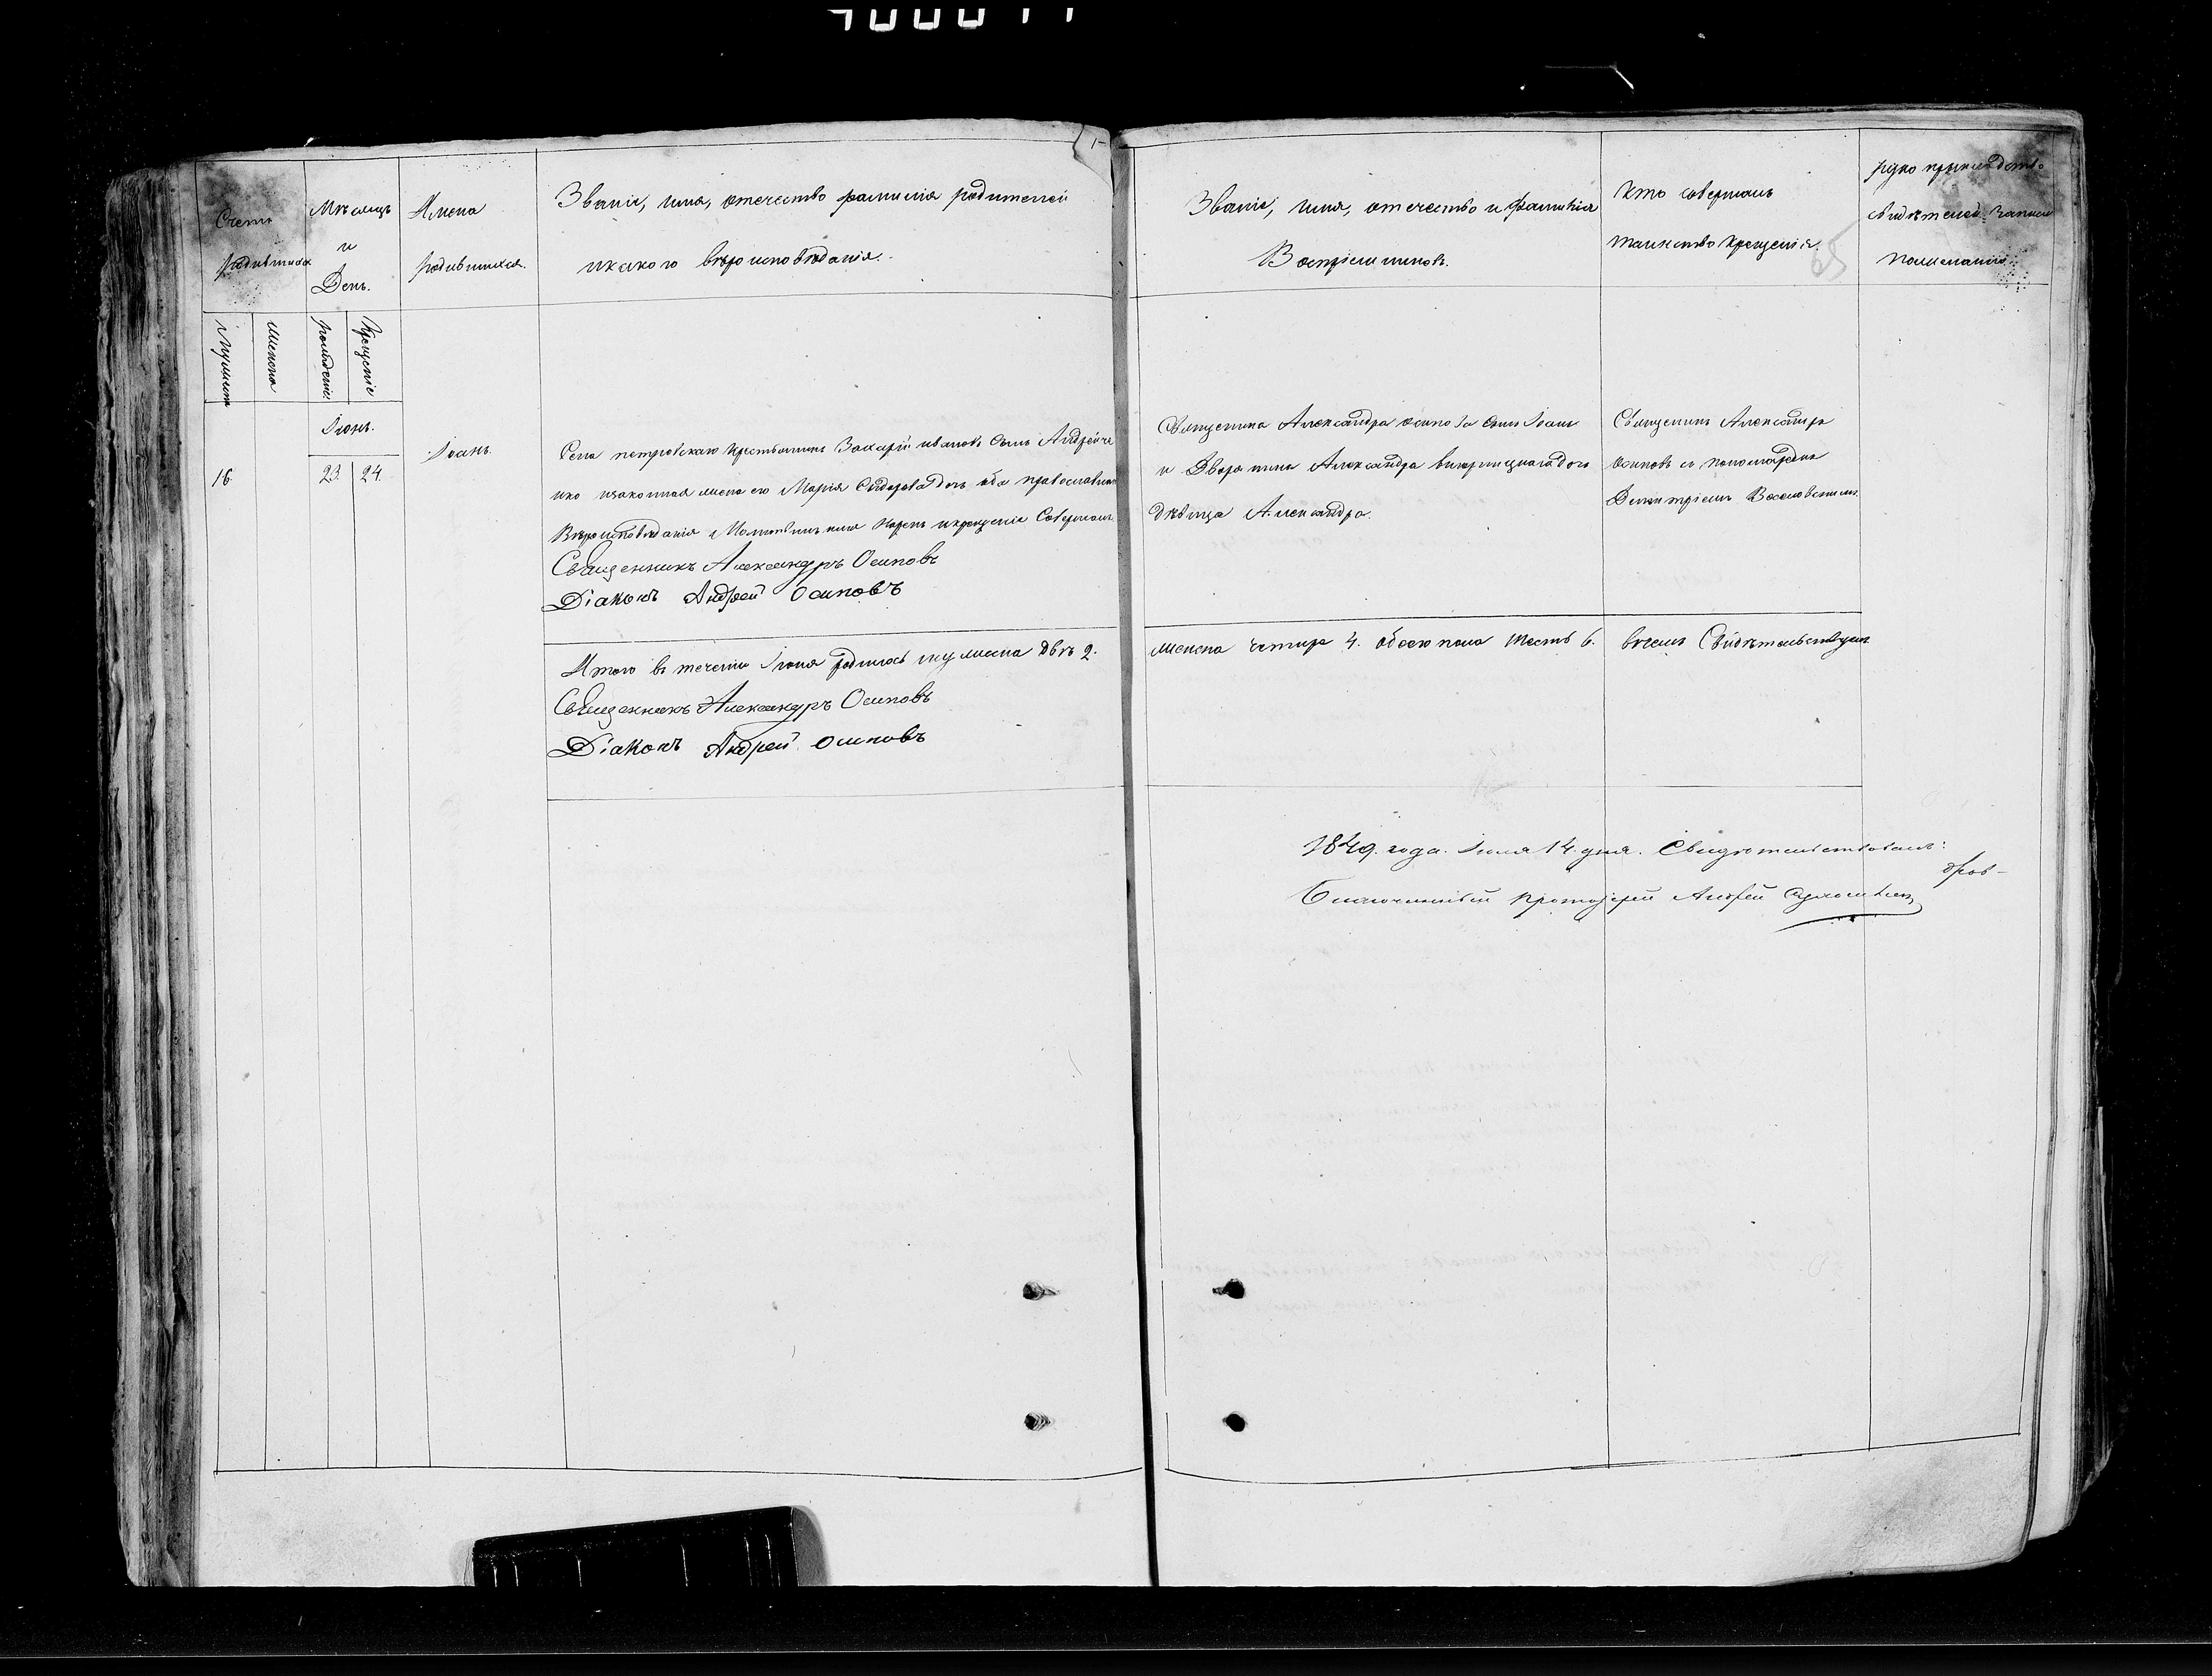 Счетъ родившихся
Мѣсяцъ и День.
Имена родившихся.
Званіе, имя, отечество фамилія родителей
икакого вѣроисповѣданія.
Званіе, имя, отечество и фамилія
Воспріемниковъ.
Кто совершалъ
таинство крещенія.
Рукоприкладство
свидѣтелей записи
пожеланію.
Мужеска
Женска
рожденіе
Крещеніе
Іюнь.
16.
23.
24.
Іоанъ.
Села петровскаго крестьянинъ Захарій ивановъ сынъ Андрейче
нко изаконная жена его Марія Сидорова дочь оба православнаго
Вѣроисповѣданія Молитвилъ имя Нарекъ икрещеніе Совершалъ.
Священникъ Александръ Осиповъ
Діаконъ Андрей Осиповъ
Священика Александра осипова сынъ Іоанъ
и Дворянина Александра дочь
дѣвица Александра.
Священикъ Александръ
Осиповъ съ пономаремъ
Димитріемъ
Итого въ теченіи Іюня родилось мужеска двѣ 2.
женска четыре 4. обоего пола шесть 6.
вочемъ Свидѣтельствуемъ
Священникъ Александръ Осиповъ
Діаконъ Андрей Осиповъ
1849. года. Іюля 14. дня. Свидѣтельствовалъ:
Благочинный протоіерей Андрей